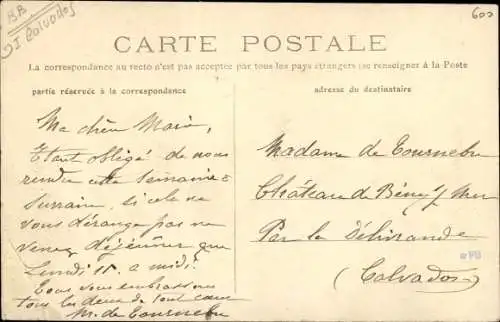 BB
I Calvados
600
CARTE POSTALE
La correspondance au recto n'est pas acceptée par tous les pays étrangers (se renseigner à la Poste
partie réservée à la correspondance
adresse du destinataire
Ma chère Marie,
Etant obligé de nous
rendre cette semaine à
si cela ne
vous dérange pas ne
venez déjeûner que
Lundi 11 à midi.
Nous vous embrassons
tous les deux de tout cœur
M. de Tournebu
Madame de Tournebu
Château de Bény s/ Mer
Par la Délivrande
(Calvados)
PB